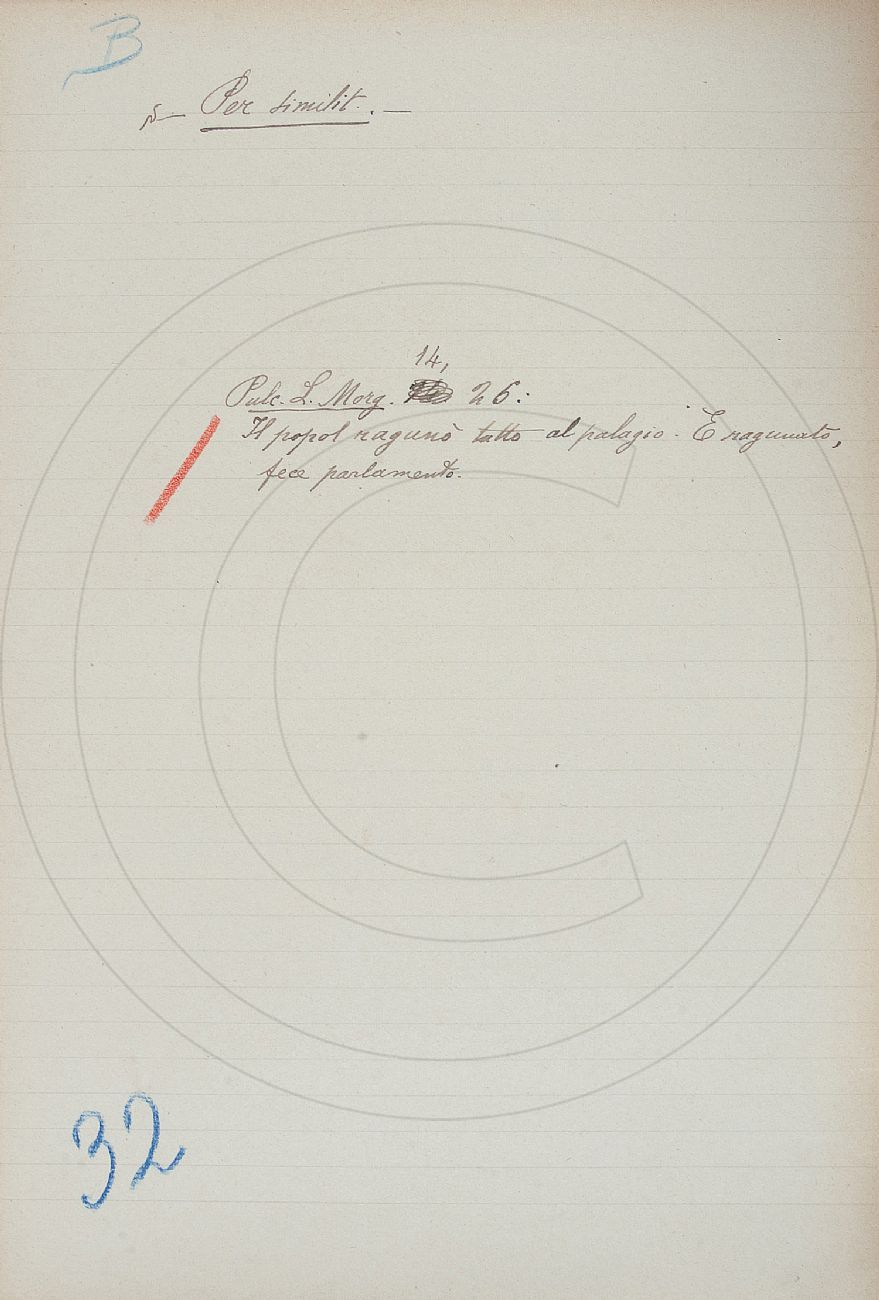 B
— Per similit. —
14,
Pulc. L. Morg. 26:
Il popol ragunò tutto al palagio. E ragunato,
fece parlamento.
32